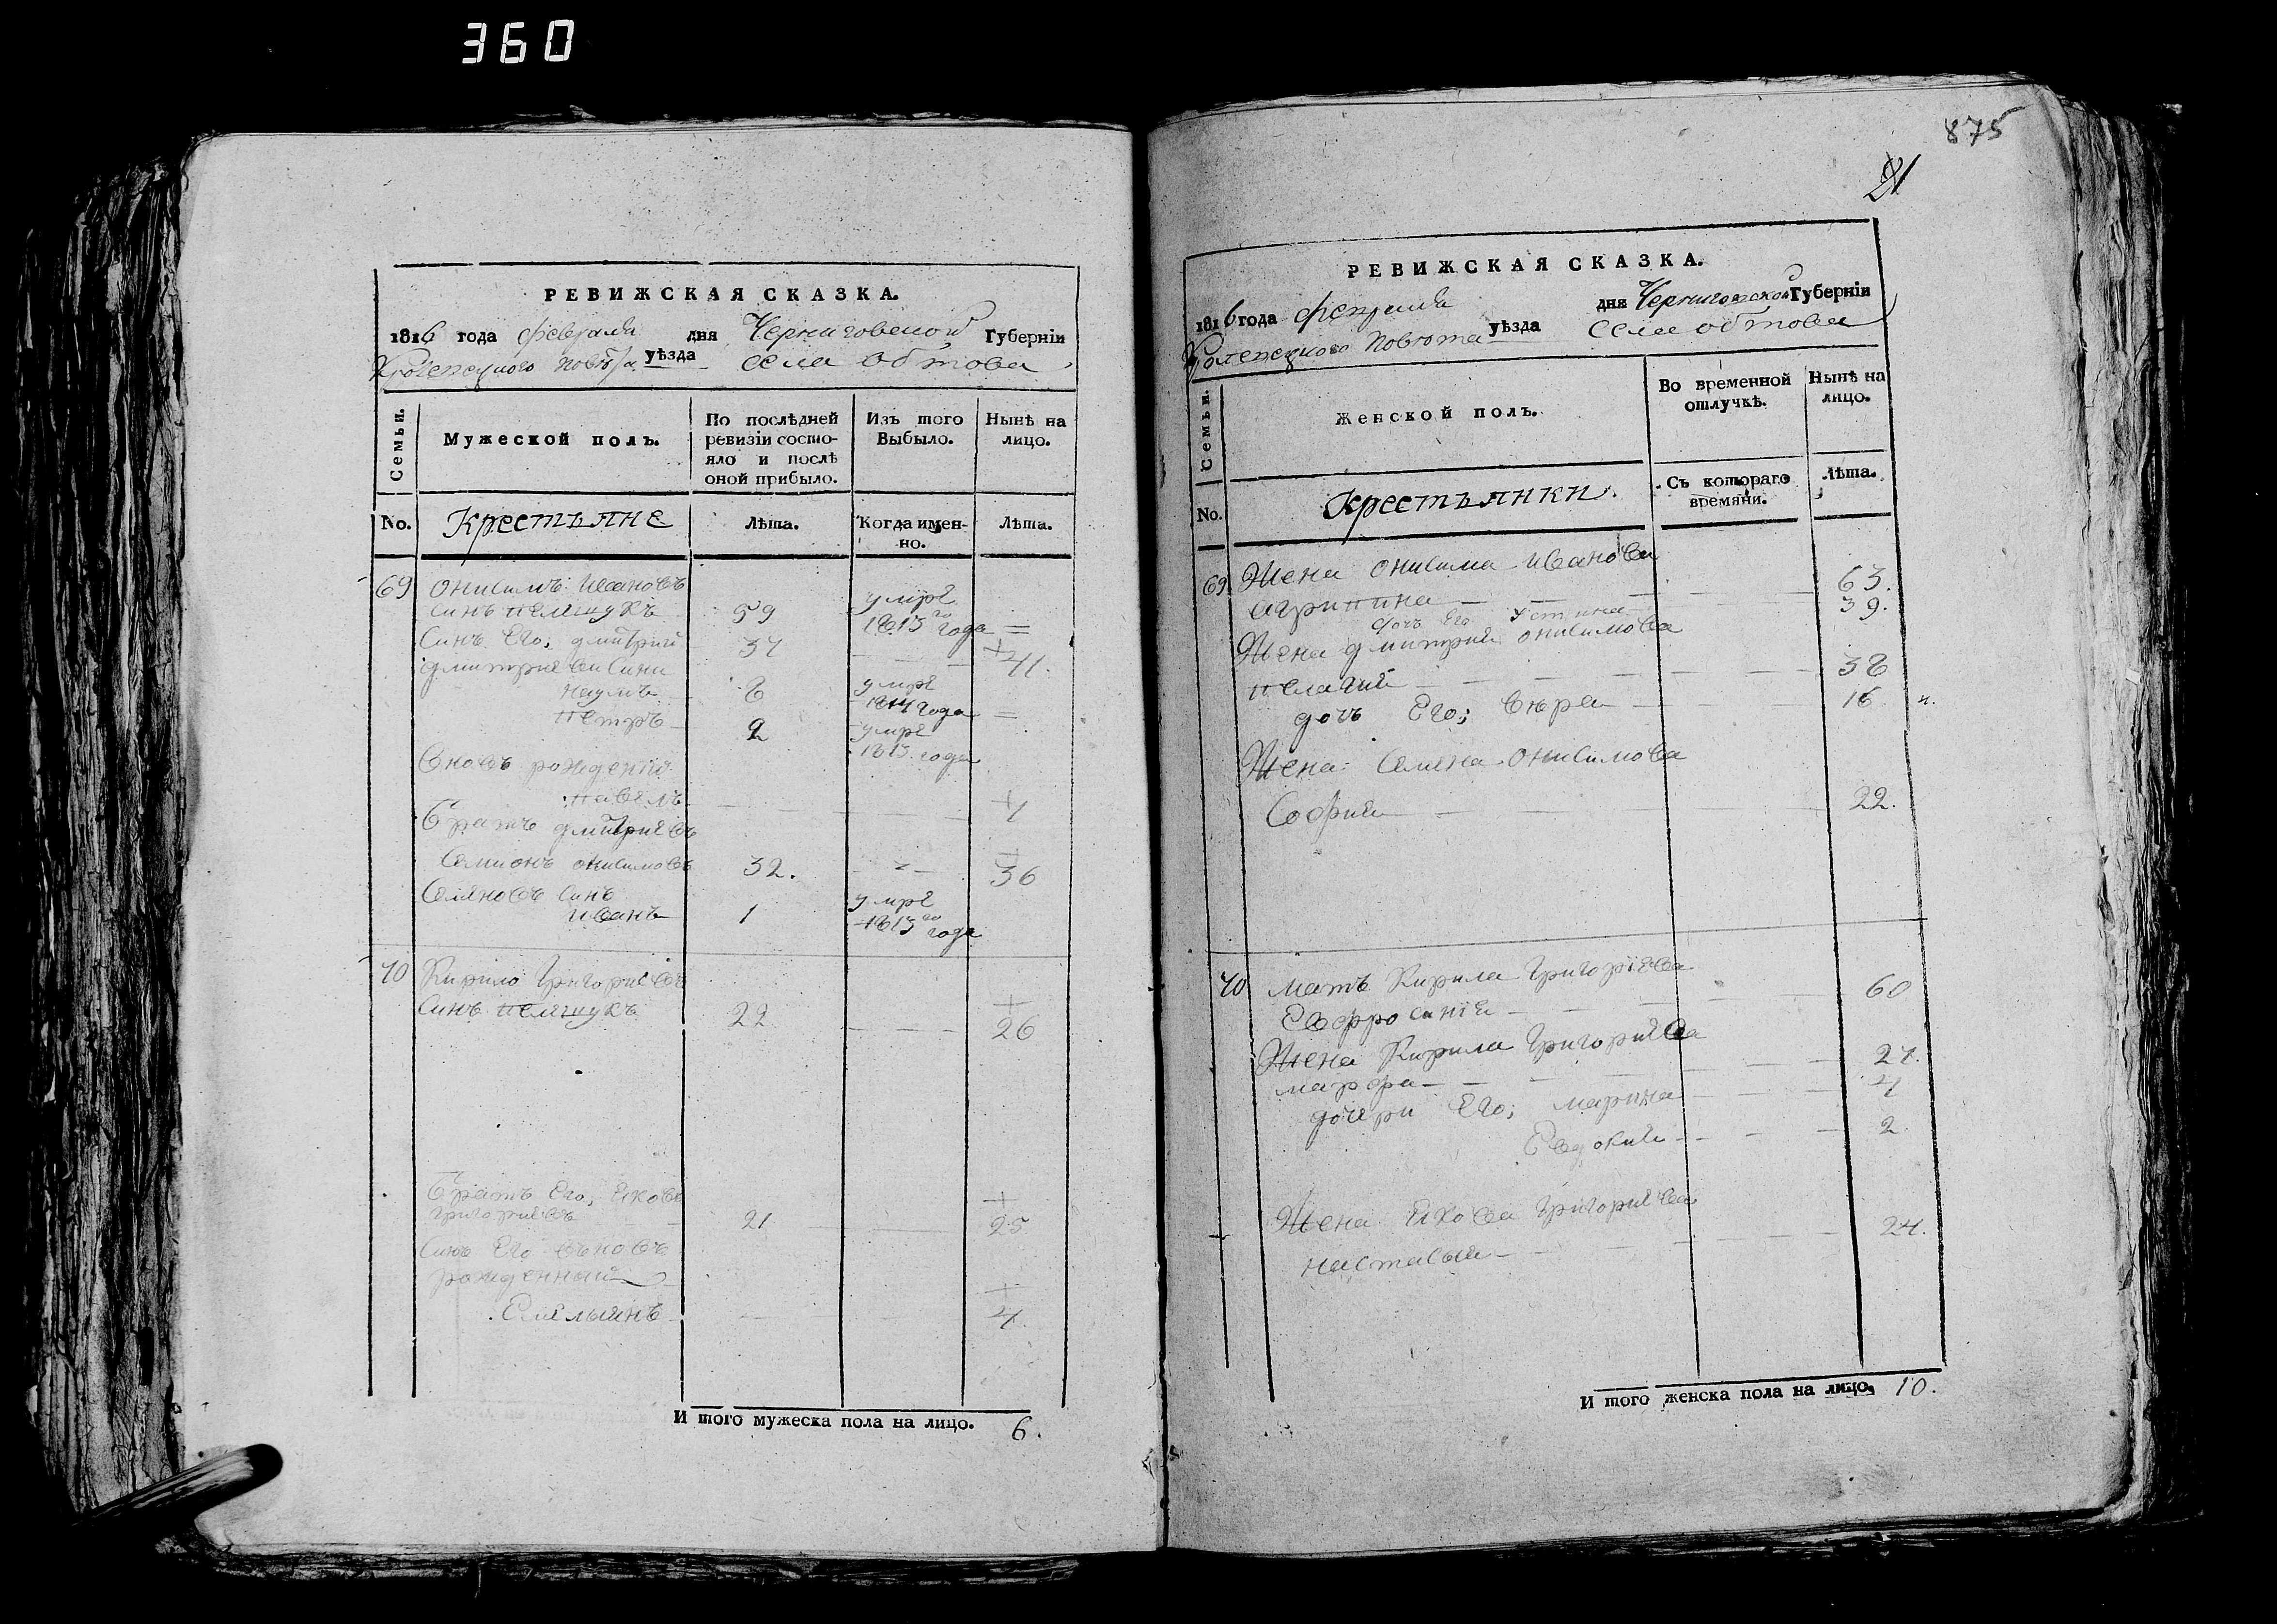 360
РЕВИЖСКАЯ СКАЗКА.
1816 года февраля дня Черниговской Губерніи
Кролевецкого повѣта уѣзда села обтова
Семьи.
Мужеской полъ.
По послѣдней ревизіи состояло и послѣ оной прибыло.
Изъ того Выбыло.
Нынѣ на лицо.
No.
Крестьяне
Лѣта.
Когда именно.
Лѣта.
69 Онисимъ Ивановъ умре
синъ пелшукъ 59 1813го года =
Синъ Его, дмитрий 37 — +41.
дмитриеви Сини
наумъ 8 умре 1814 года =
петръ 2 умре 1813 года
Вновь рожденій
павелъ — — + 4
Братъ дмитриевъ
Семионъ онисимовъ 32. — + 36
Семеновъ Синъ
иванъ 1 умре 1813го года
70 Кирило Григориевъ
Синъ пелшукъ 22 — — — + 26
Братъ Его, Яковъ
григориевъ 21 — + 25
Синъ Его вьновъ
рожденный
Емельянъ — — + 4.
И того мужеска пола на лицо. 6.
875
21
РЕВИЖСКАЯ СКАЗКА.
1816 года февраля дня Черниговской Губерніи
Кролевецкого повѣта уѣзда села обтова
Семьи.
Женской полъ.
Во временной отлучкѣ.
Нынѣ на лицо.
No.
Крестьянки.
Съ котораго времяни.
Лѣта.
69 Жена онисима иванова
агрипина — — — 63.
дочъ Его Устина 39.
Жена дмитрия онисимова
пелагия — — — 38
дочъ Его; — 16
Жена Семена онисимова
София — — — 22.
70 мать Кирила Григориева
Евфросинія — — 60
Жена Кирила Григориева
марфа — — — 27.
дочери Его; марина — — 4
Евдокия — — — 2.
Жена Якова Григориева
настасия — — — 24.
И того женска пола на лицо. 10.